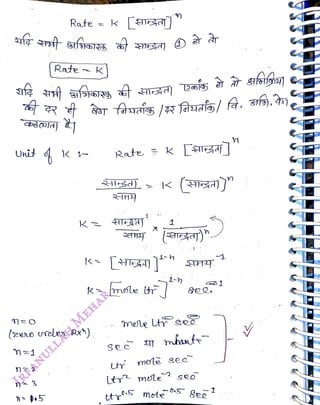 Rate = K [सान्द्रता]ⁿ
यदि सभी अभिकारक की सान्द्रता ① हो तो
Rate = K
यदि सभी अभिकारक की सान्द्रता एकांक हो तो अभिक्रिया
की दर ही वेग नियतांक / दर नियतांक / वि. अभि. वेग
कहलाता है।
Unit of K :- Rate = K [सान्द्रता]ⁿ
सान्द्रता / समय = K (सान्द्रता)ⁿ
K = सान्द्रता¹ / समय × 1 / (सान्द्रता)ⁿ
K = [सान्द्रता]¹⁻ⁿ समय⁻¹
K = [mole Ltr⁻¹]¹⁻ⁿ sec⁻¹
n=0 mole Ltr⁻¹ sec⁻¹
(zero order Rxⁿ)
n=1 sec⁻¹ या minute⁻¹
n=2 Ltr mole⁻¹ sec⁻¹
n=3 Ltr² mole⁻² sec⁻¹
n=1.5 Ltr⁰·⁵ mole⁻⁰·⁵ sec⁻¹